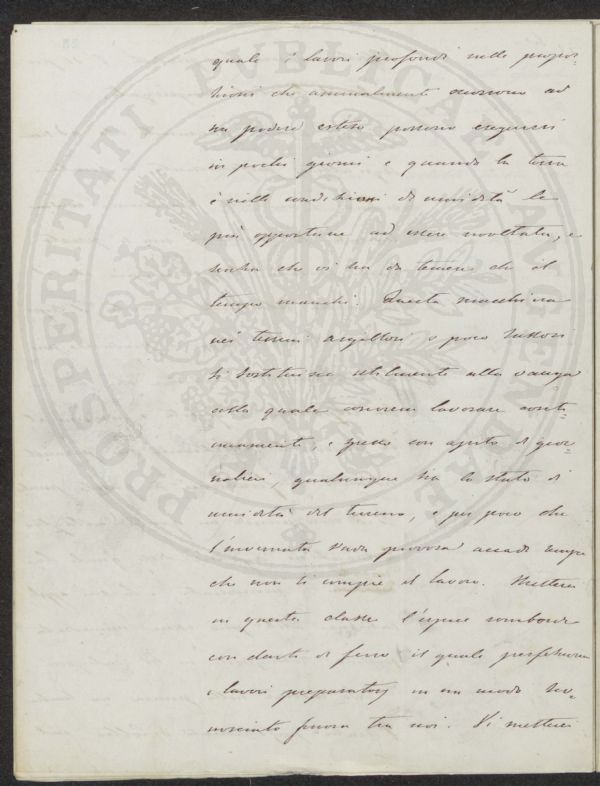 quale i lavori profondi nelle propor-
zioni che annualmente occorrono ad
un podere esteso possono eseguirsi
in pochi giorni e quando la terra
è nelle condizioni di umidità le
più opportune ad essere rivoltata, e
senza che vi sia da temere che il
tempo manchi. Questa macchina
nei terreni argillosi e poco sassosi
si sostituisce utilmente alla vanga
colla quale conviene lavorare conti-
nuamente, e spesso con ajuto di gior-
nalieri, qualunque sia lo stato di
umidità del terreno, e per poco che
l'invernata vada piovosa accade sempre
che non si compie il lavoro. Metterei
in questa classe l'erpice romboide
con denti di ferro il quale perfeziona
i lavori preparatorj in un modo sco-
nosciuto finora tra noi. Vi metterei
PROSPERITATI PVBLICAE AVGENDAE